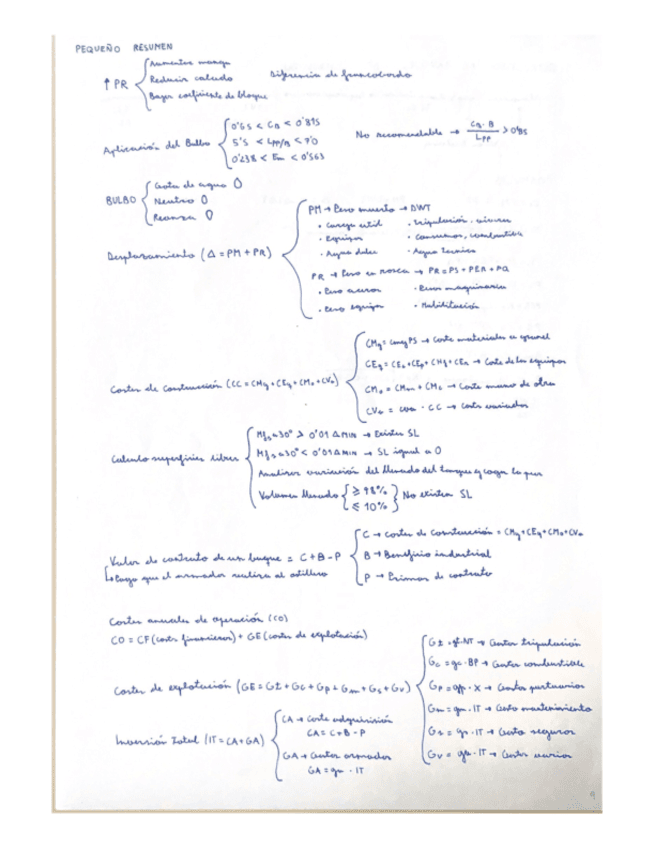 PEQUEÑO RESUMEN
↑ PR
Aumentar manga
Reducir calado
Bajar coeficiente de bloque
Diferencia de francobordo
Aplicación del Bulbo
0'65 < CB < 0'815
5'5 < LPP/B < 7'0
0'238 < Fn < 0'563
No recomendable → CB · B / LPP > 0'85
BULBO
Gota de agua 0
Neutro 0
0
Desplazamiento (Δ = PM + PR)
PM → Peso muerto → DWT
• Carga util • tripulación, viveres
• Equipos • Consumos, combustible
• Agua dulce • Agua tecnica
PR → Peso en rosca → PR = PS + PER + PQ
• Peso aceros • Pesos maquinaria
• Peso equipo • Habilitación
Costes de construcción (CC = CMg + CEq + CMo + CVa)
CMg = cmg PS → Coste materiales a granel
CEq = CEc + CEp + CHf + CEr → Coste de los equipos
CMo = CMm + CMs → Coste mano de obra
CVa = cva · CC → Costes variados
Calculo superficies libres
Mfs a 30° > 0'01 Δ MIN → Existen SL
Mfs a 30° < 0'01 Δ MIN → SL igual a 0
Analizar variación del llenado del tanque y coger la peor
Volumen llenado ≥ 98% ≤ 10% No existen SL
Valor de contrato de un buque = C + B - P
↳ Pago que el armador realiza al astillero
C → Costes de Construcción = CMg + CEq + CMo + CVa
B → Beneficio industrial
P → Primas de contrato
Costes anuales de operación (CO)
CO = CF (costes financieros) + GE (costes de explotación)
Costes de explotación (GE = Gt + Gc + Gp + Gm + Gs + Gv)
Gt = gt · NT → Gastos tripulación
Gc = gc · BP → Gastos combustible
Gp = gp · X → Gastos portuarios
Gm = gm · IT → Gasto mantenimiento
Gs = gs · IT → Gasto seguros
Gv = gv · IT → Gastos varios
Inversión total (IT = CA + GA)
CA → Coste adquisición
CA = C + B - P
GA → Gastos armador
GA = ga · IT